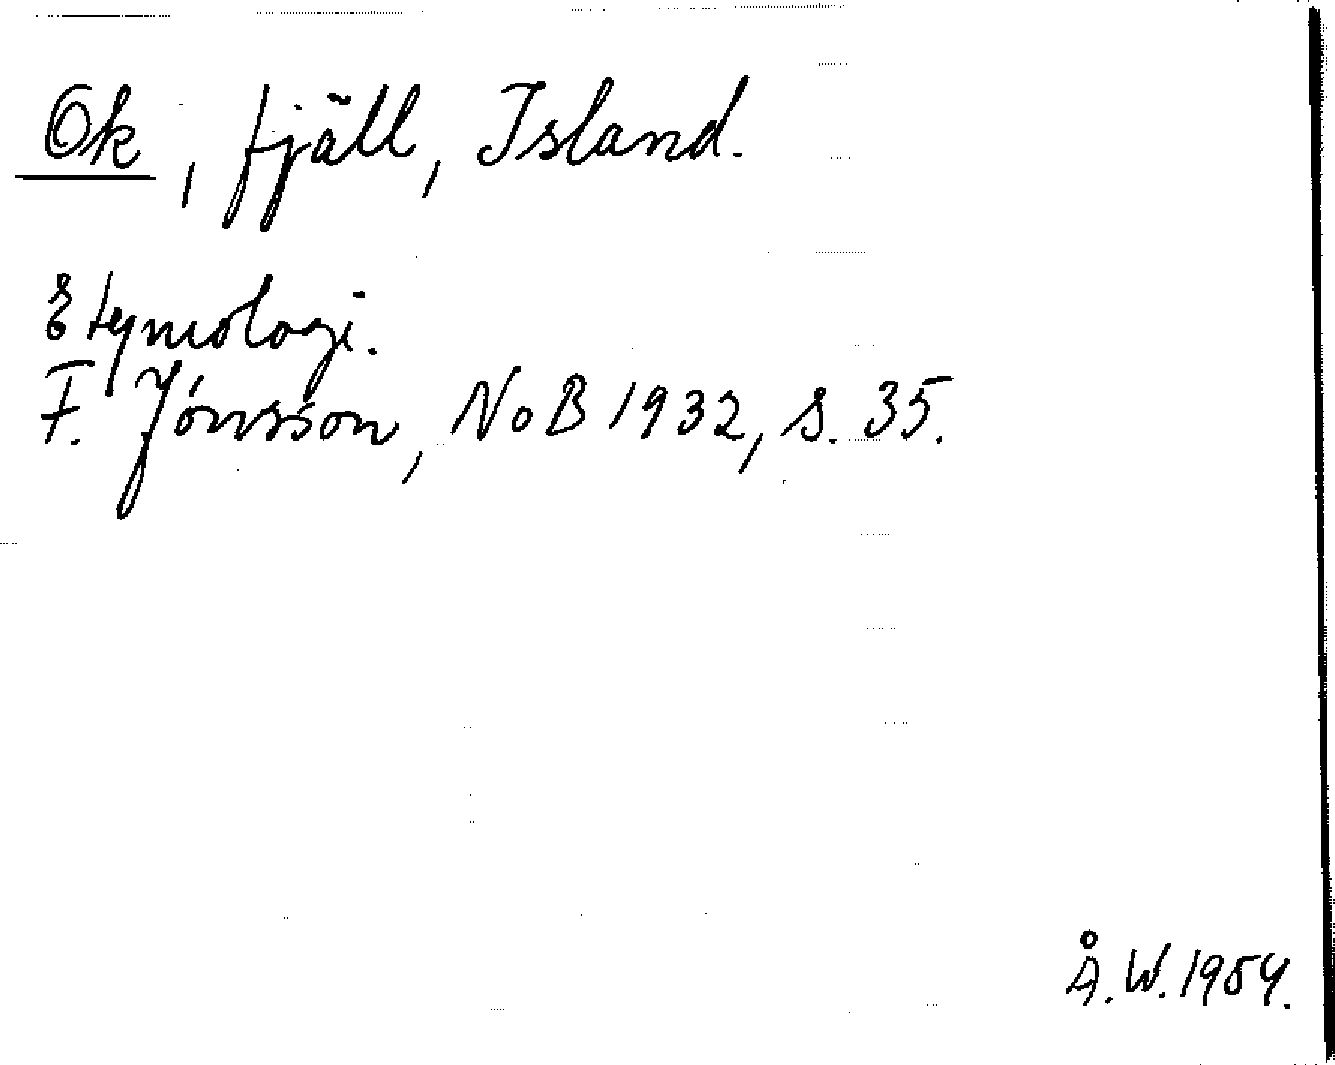 Ok, fjäll, Island.
Etymologi.
F. Jónsson, NoB 1932, s. 35.
Å. W. 1954.